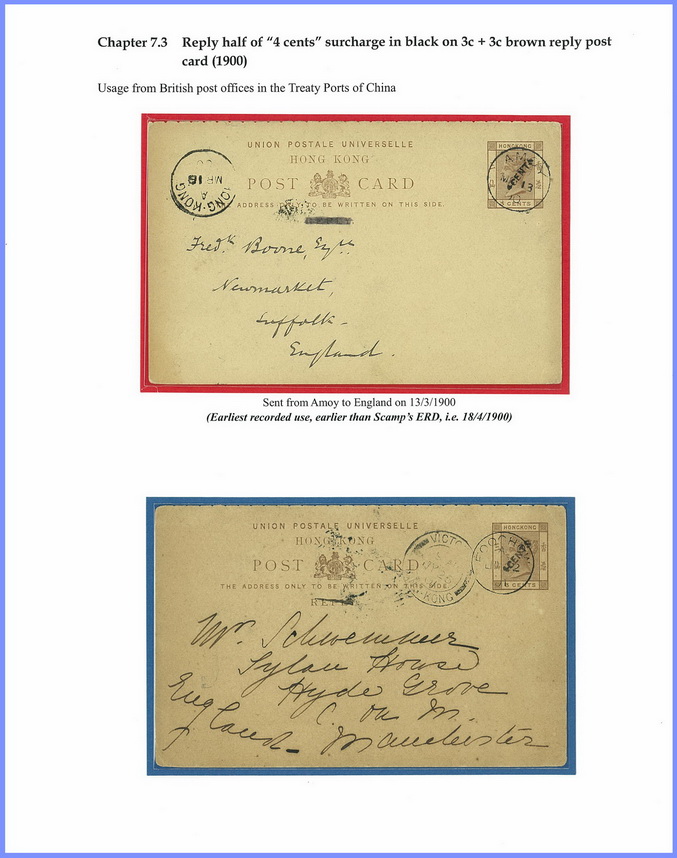 Chapter 7.3 Reply half of “4 cents” surcharge in black on 3c + 3c brown reply post
card (1900)
Usage from British post offices in the Treaty Ports of China
UNION POSTALE UNIVERSELLE
HONG KONG
POST CARD
ADDRESS ONLY TO BE WRITTEN ON THIS SIDE.
HONGKONG
4 CENTS
CENTS
AM
13
HONG-KONG
A
MR 18
00
Fredk. Boone, Esqre.
Newmarket,
Suffolk
England.
Sent from Amoy to England on 13/3/1900
(Earliest recorded use, earlier than Scamp’s ERD, i.e. 18/4/1900)
UNION POSTALE UNIVERSELLE
HONG KONG
POST CARD
THE ADDRESS ONLY TO BE WRITTEN ON THIS SIDE.
REPLY
HONGKONG
CENTS
VICTO
KONG
FOOCH
Mr. Schwemmer
Sylan House
Hyde Grove
C. on M.
Manchester
England